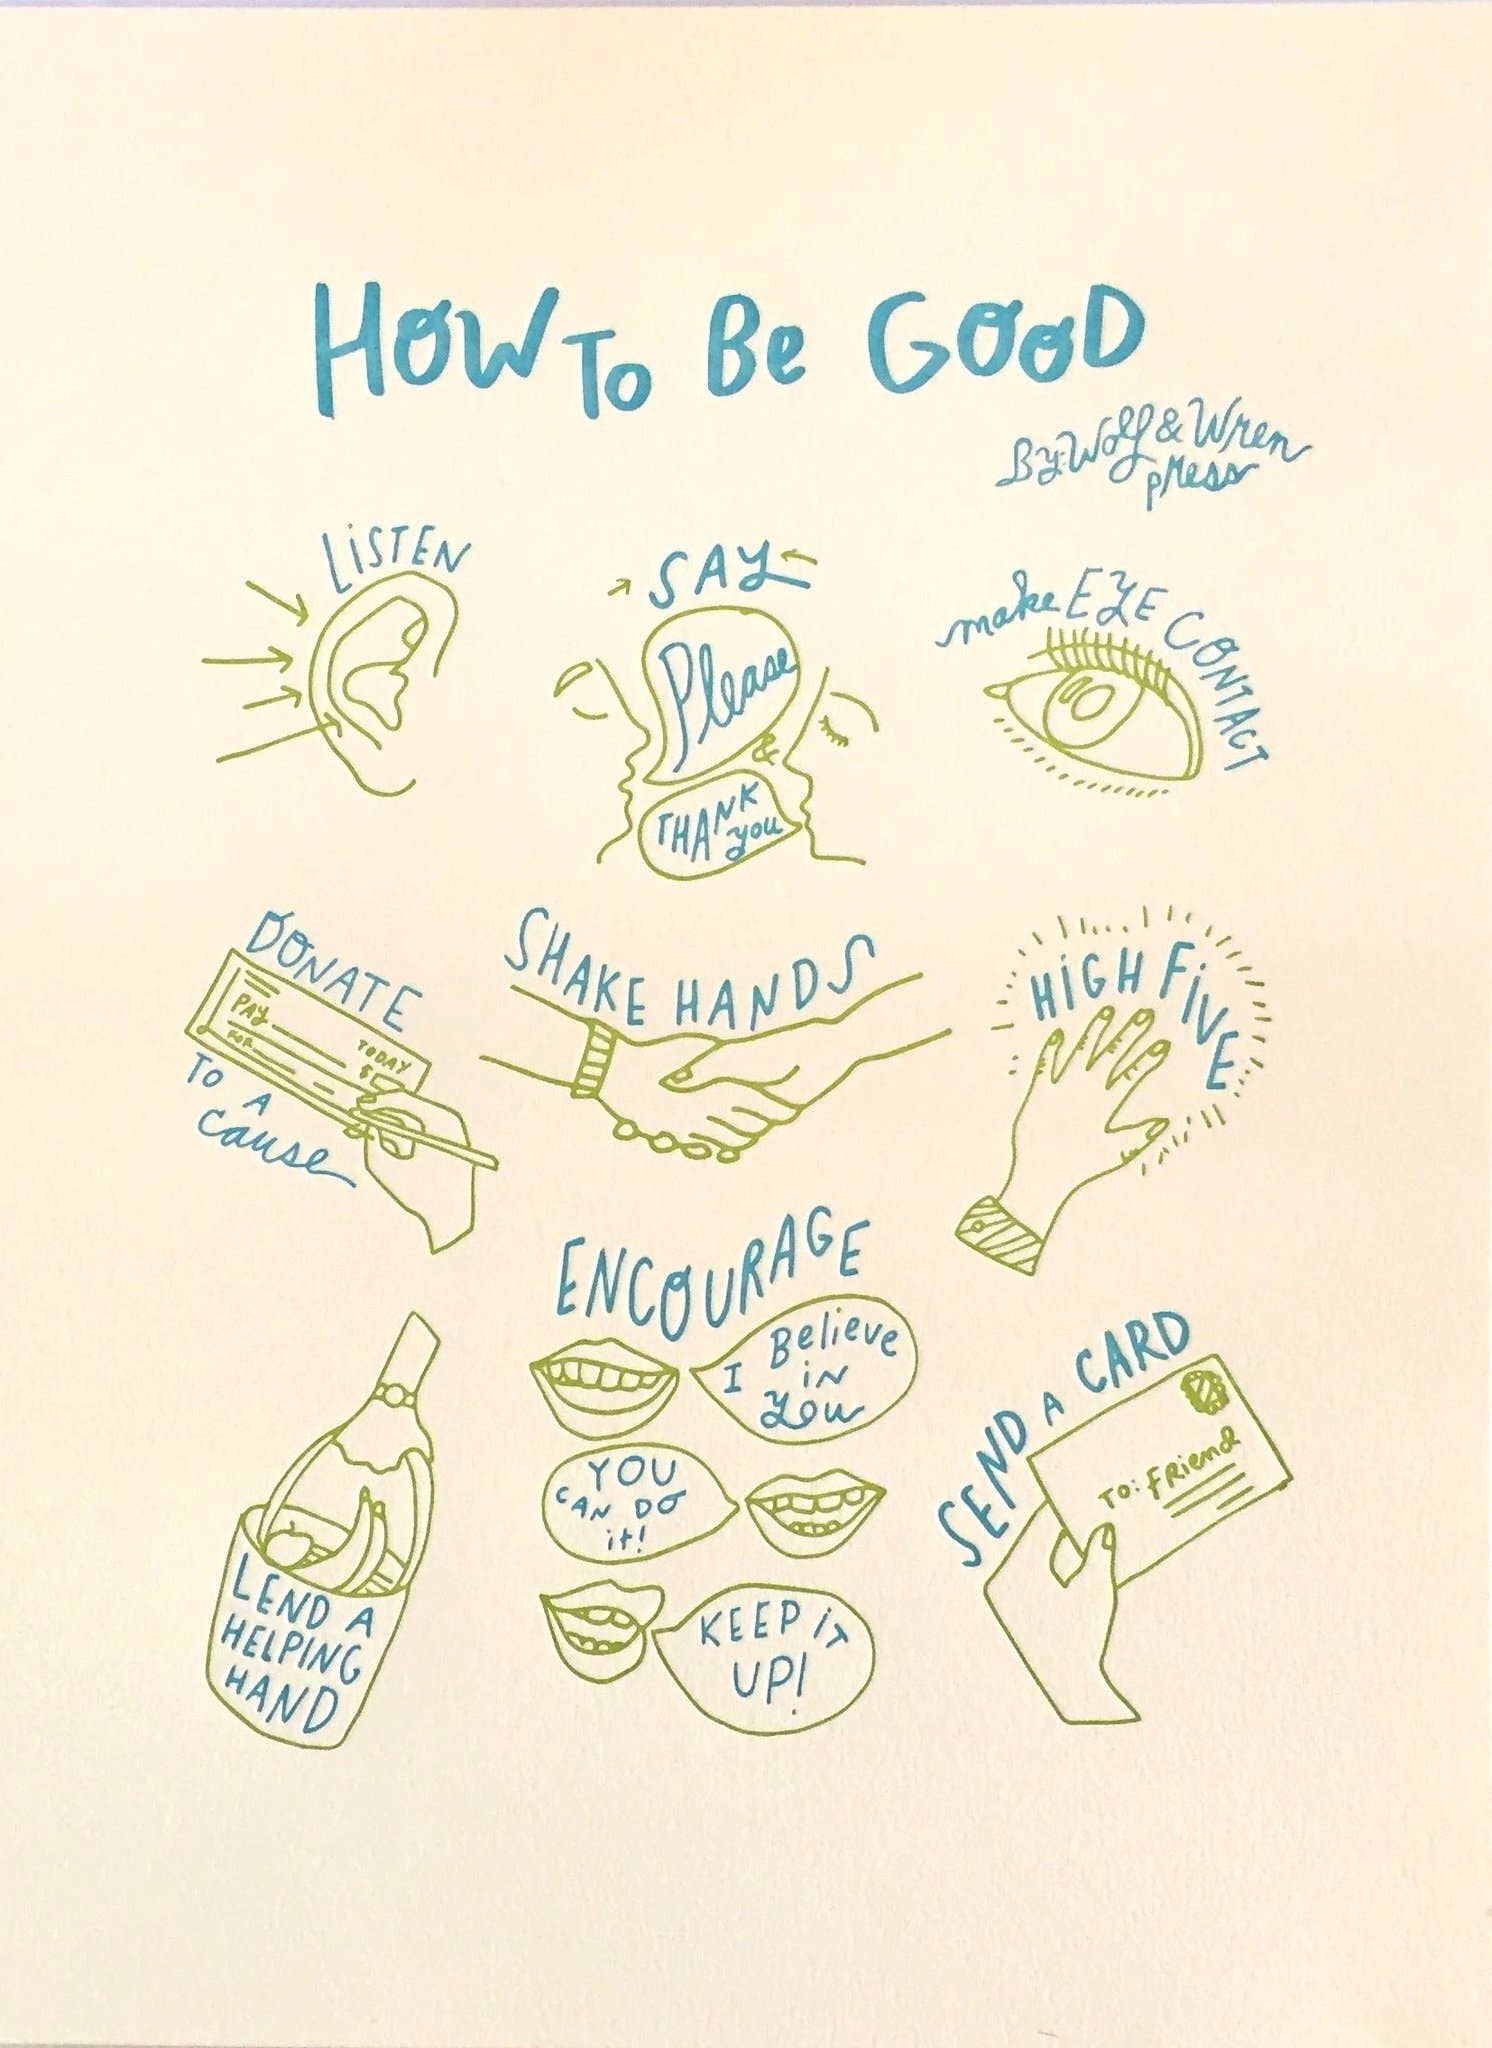 HOW TO Be GOOD
By: Wolf & Wren
press
LiSTEN
SAY
Please
&
THANK
you
make EYE CONTACT
DONATE
PAY
TODAY
FOR
$
TO A
cause
SHAKE HANDS
HiGH FiVE
LEND A
HELPING
HAND
ENCOURAGE
I Believe
iN
You
YOU
CAN DO
it!
KEEP iT
UP!
SEND A CARD
TO: FRiend